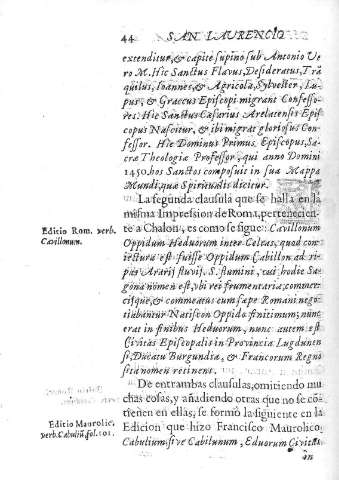 44 SAN LAURENCIO
extenditur, & capite supino sub Antonio Ve
ro M. Hic Sanctus Flavus, Desideratus, Trā
quilus, Ioannes, & Agricola, Sylvester, Lu-
pus, & Graecus Episcopi migrant Confesso-
res. Hic Sanctus Caesarius Arelatensis Epis
copus Nascitur, & ibi migrat gloriosus Con-
fessor. Hic Dominus Primus, Episcopus, Sa-
crae Theologiae Professor, qui anno Domini
1450. hos Sanctos composuit in sua Mappa
Mundi, quae Spiritualis dicitur.
La segunda clausula que se halla en la
misma Impression de Roma, perteneciẽ-
te a Chalon, es como se sigue: Cavillonum
Oppidum Heduorum inter Celtas, quod con-
iectura est fuisse Oppidum Cabillon ad ri-
pas Araris fluvij. S. flumini, cui hodie Sag
gona nomen est, ubi rei frumentaria, commer-
cijsque, & commeatus cum sape Romani nego-
tiabantur Natiscon Oppido finitimum; nūnc
erat in finibus Heduorum, nunc autem est
Civitas Episcopalis in Provincia Lugdunen
si, Ducatu Burgundiae, & Francorum Regno
sita nomen retinens.
De entrambas clausulas, omitiendo mu
chas cosas, y añadiendo otras que no se cõ
tienen en ellas, se formò la siguiente en la
Edicion que hizo Francisco Maurolico,
Cabulium sive Cabilunum, Eduorum Civitas
in
Editio Rom. verb.
Cavillonum.
Editio Maurolic.
verb. Cabuliū. fol. 101.